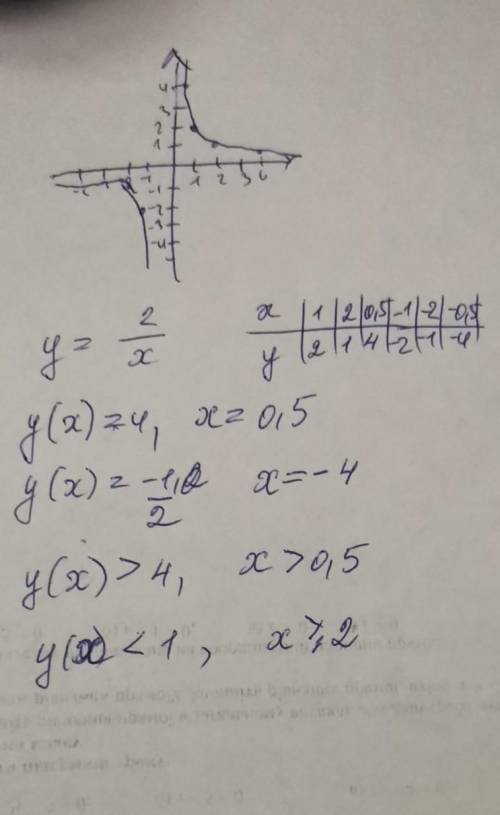 4
3
2
1
1 2 3 4
-1
-2
-3
-4
y = 2/x
x | 1 | 2 | 0,5 | -1 | -2 | -0,5
y | 2 | 1 | 4 | -2 | -1 | -4
y(x) = 4, x = 0,5
y(x) = -1/2 x = -4
y(x) > 4, x > 0,5
y(x) < 1, x ⩾ 2